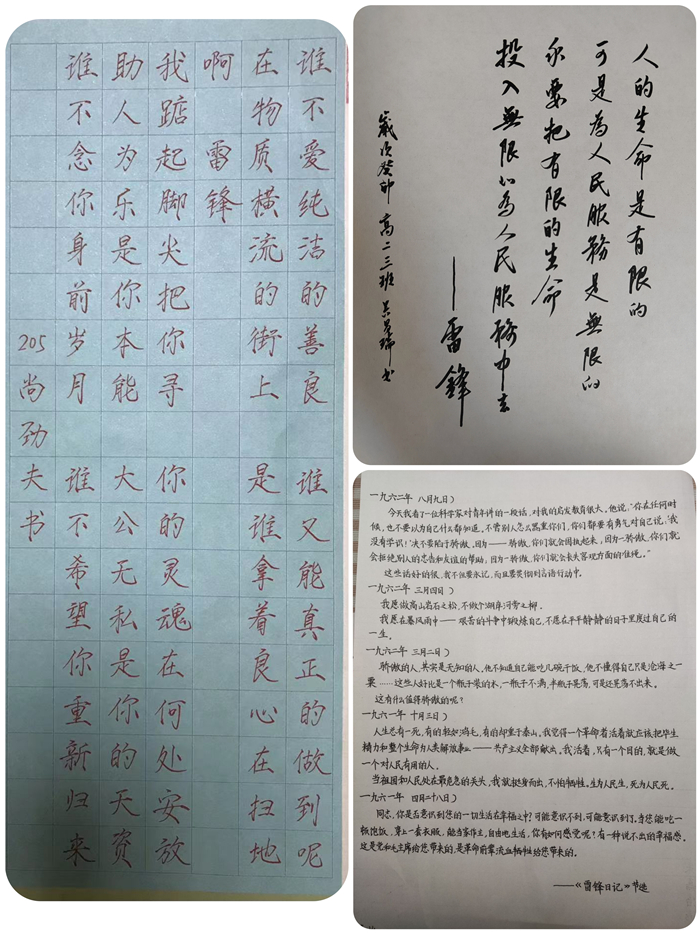 谁不爱纯洁的善良 谁又能真正的做到呢
在物质横流的街上 是谁拿着良心在扫地
啊 雷锋
我踮起脚尖把你寻 你的灵魂在何处安放
助人为乐是你本能 大公无私是你的天资
谁不念你身前岁月 谁不希望你重新归来
205尚劲夫书
人的生命是有限的
可是為人民服務是無限的
我要把有限的生命
投入無限的為人民服務中去
——雷鋒
歲次癸卯 高二三班 书
一九六二年 八月九日）
今天我看了一位科学家对青年讲的一段话，对我的启发教育很大。他说：“你在任何时
候，也不要以为自己什么都知道。不管别人怎么器重你们，你们都要有勇气对自己说：‘我
没有学识！’决不要陷于骄傲。因为——骄傲，你们就会固执起来，因为一骄傲，你们就
会拒绝别人的忠告和友谊的帮助，因为一骄傲，你们就会丧失客观方面的准绳。”
这些话好的很，我不但要永记，而且要贯彻到言语行动中。
一九六二年 三月四日）
我愿做高山岩石之松，不做湖岸河旁之柳。
我愿在暴风雨中——艰苦的斗争中锻炼自己，不愿在平平静静的日子里度过自己的
一生。
一九六二年 三月二日）
骄傲的人，其实是无知的人，他不知道自己能吃几碗干饭，他不懂得自己只是沧海之一
粟……这些人好比是一个瓶子装的水，一瓶子不满，半瓶子晃荡，可是还晃荡不出来。
这有什么值得骄傲的呢？
一九六一年 十月三日）
人生总有一死，有的轻如鸿毛，有的却重于泰山。我觉得一个革命者活着就应该把毕生
精力和整个生命为人类解放事业——共产主义全部献出。我活着，只有一个目的，就是做
一个对人民有用的人。
当祖国和人民处在最危急的关头，我就挺身而出，不怕牺牲。生为人民生，死为人民死。
一九六一年 四月二十八日）
同志，你是否意识到您的一切生活在幸福之中？可能意识不到，可能意识到了，当您能吃一
顿饱饭，穿上一套衣服，能当家作主，自由地生活，你有如何感觉呢？有一种说不出的幸福感。
这是党和毛主席给您带来的，是革命前辈流血牺牲给您带来的。
——《雷锋日记》节选